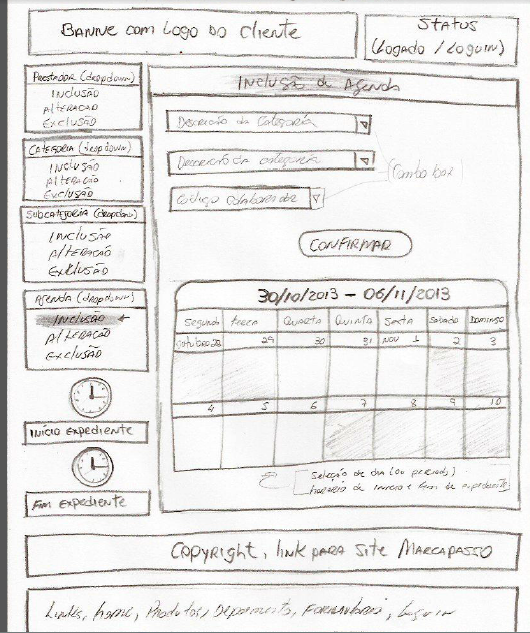 BANNE COM LOGO DO CLIENTE
STATUS
(LOGADO / LOGUIN)
PRESTADOR (dropdown)
INCLUSÃO
ALTERAÇÃO
EXCLUSÃO
CATEGORIA (dropdown)
INCLUSÃO
ALTERAÇÃO
EXCLUSÃO
SUBCATEGORIA (dropdown)
INCLUSÃO
ALTERAÇÃO
EXCLUSÃO
AGENDA (dropdown)
INCLUSÃO
ALTERAÇÃO
EXCLUSÃO
INÍCIO EXPEDIENTE
FIM EXPEDIENTE
INCLUSÃO DE AGENDA
DESCRIÇÃO DA CATEGORIA
DESCRIÇÃO DA CATEGORIA
CÓDIGO COLABORADOR
(Combo box)
CONFIRMAR
30/10/2013 - 06/11/2013
Segunda terca Quarta Quinta Sexta Sabado Domingo
outubro 28 29 30 31 NOV 1 2 3
4 5 6 7 8 9 10
Seleção de dia (ou período)
horário de inicio e fim de expediente
COPYRIGHT, LINK PARA SITE MARCAPASSO
Links, home, Produtos, Depoimentos, Loguin